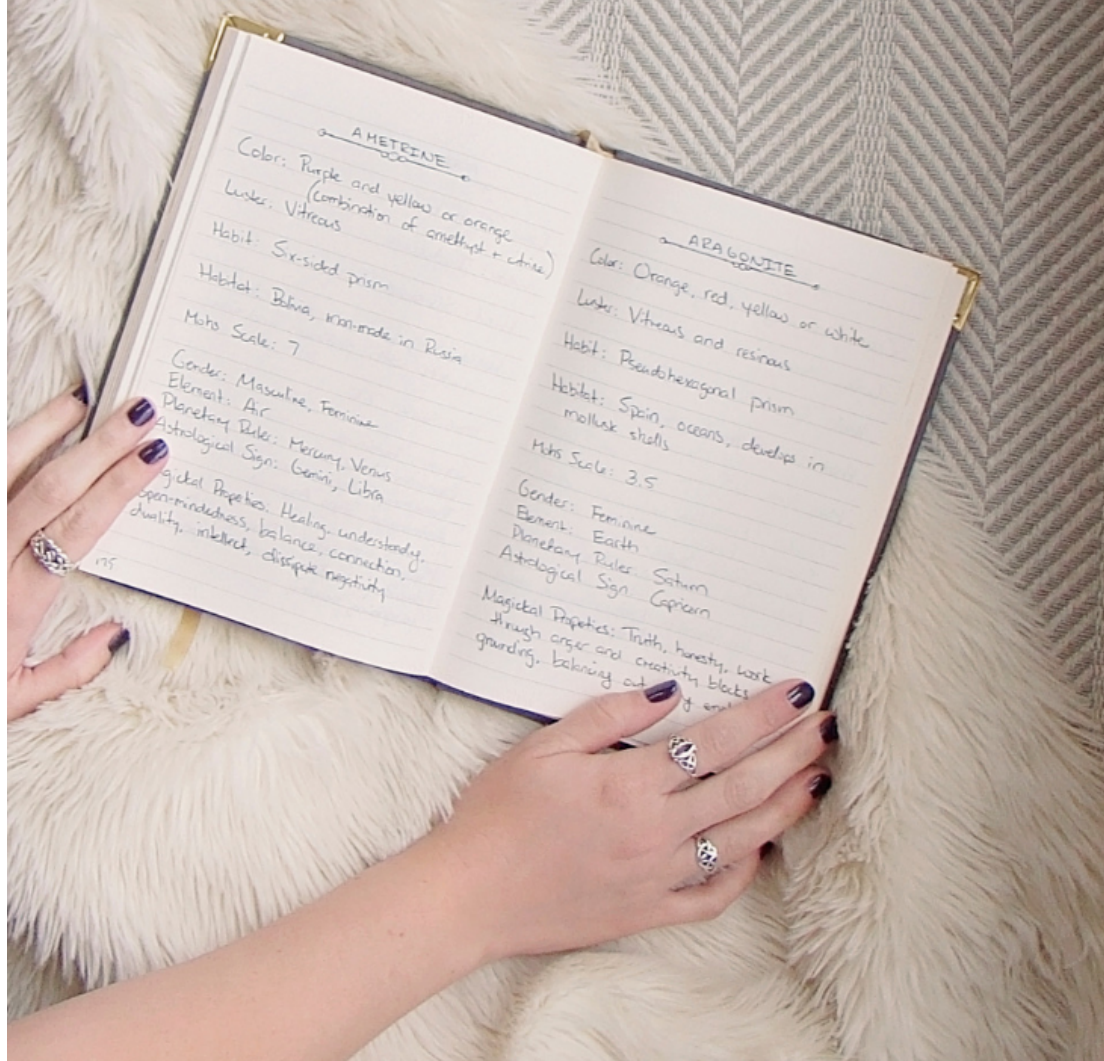 AMETRINE
Color: Purple and yellow or orange
(combination of amethyst + citrine)
Luster: Vitreous
Habit: Six-sided prism
Habitat: Bolivia, man-made in Russia
Mohs Scale: 7
Gender: Masculine, Feminine
Element: Air
Planetary Ruler: Mercury, Venus
Astrological Sign: Gemini, Libra
gickal Properties: Healing, understandg,
open-mindedness, balance, connection,
duality, intellect, dissipate negativity
175
ARAGONITE
Color: Orange, red, yellow or white
Luster: Vitreous and resinous
Habit: Pseudohexagonal prism
Habitat: Spain, oceans, develops in
mollusk shells
Mohs Scale: 3.5
Gender: Feminine
Element: Earth
Planetary Ruler: Saturn
Astrological Sign: Capricorn
Magickal Properties: Truth, honesty, work
through anger and creativity blocks
grounding, balancing out